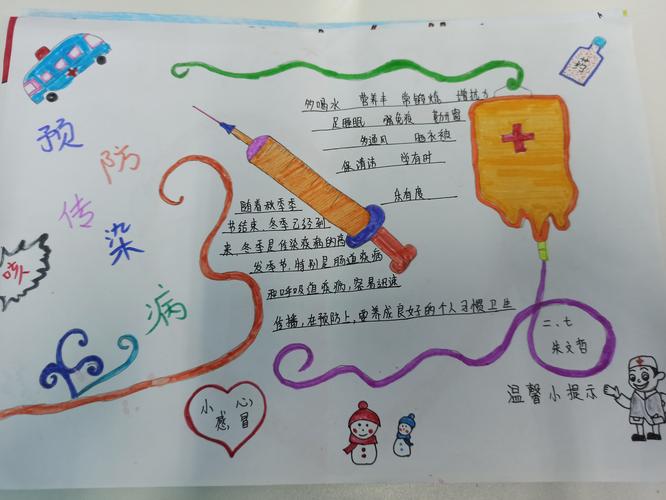 预防传染病
咳
多喝水 营养丰 常锻炼 增抗力
足睡眠 强免疫 勤
多通风 晒衣被
保清洁 学有时
乐有度
随着秋季季
节结束、冬季已经到
来、冬季是传染疾病的高
发季节,特别是肠道疾病
和呼吸道疾病,容易迅速
传播,在预防上,要养成良好的个人习惯卫生
二、七
朱文哲
温馨小提示
小心
感冒